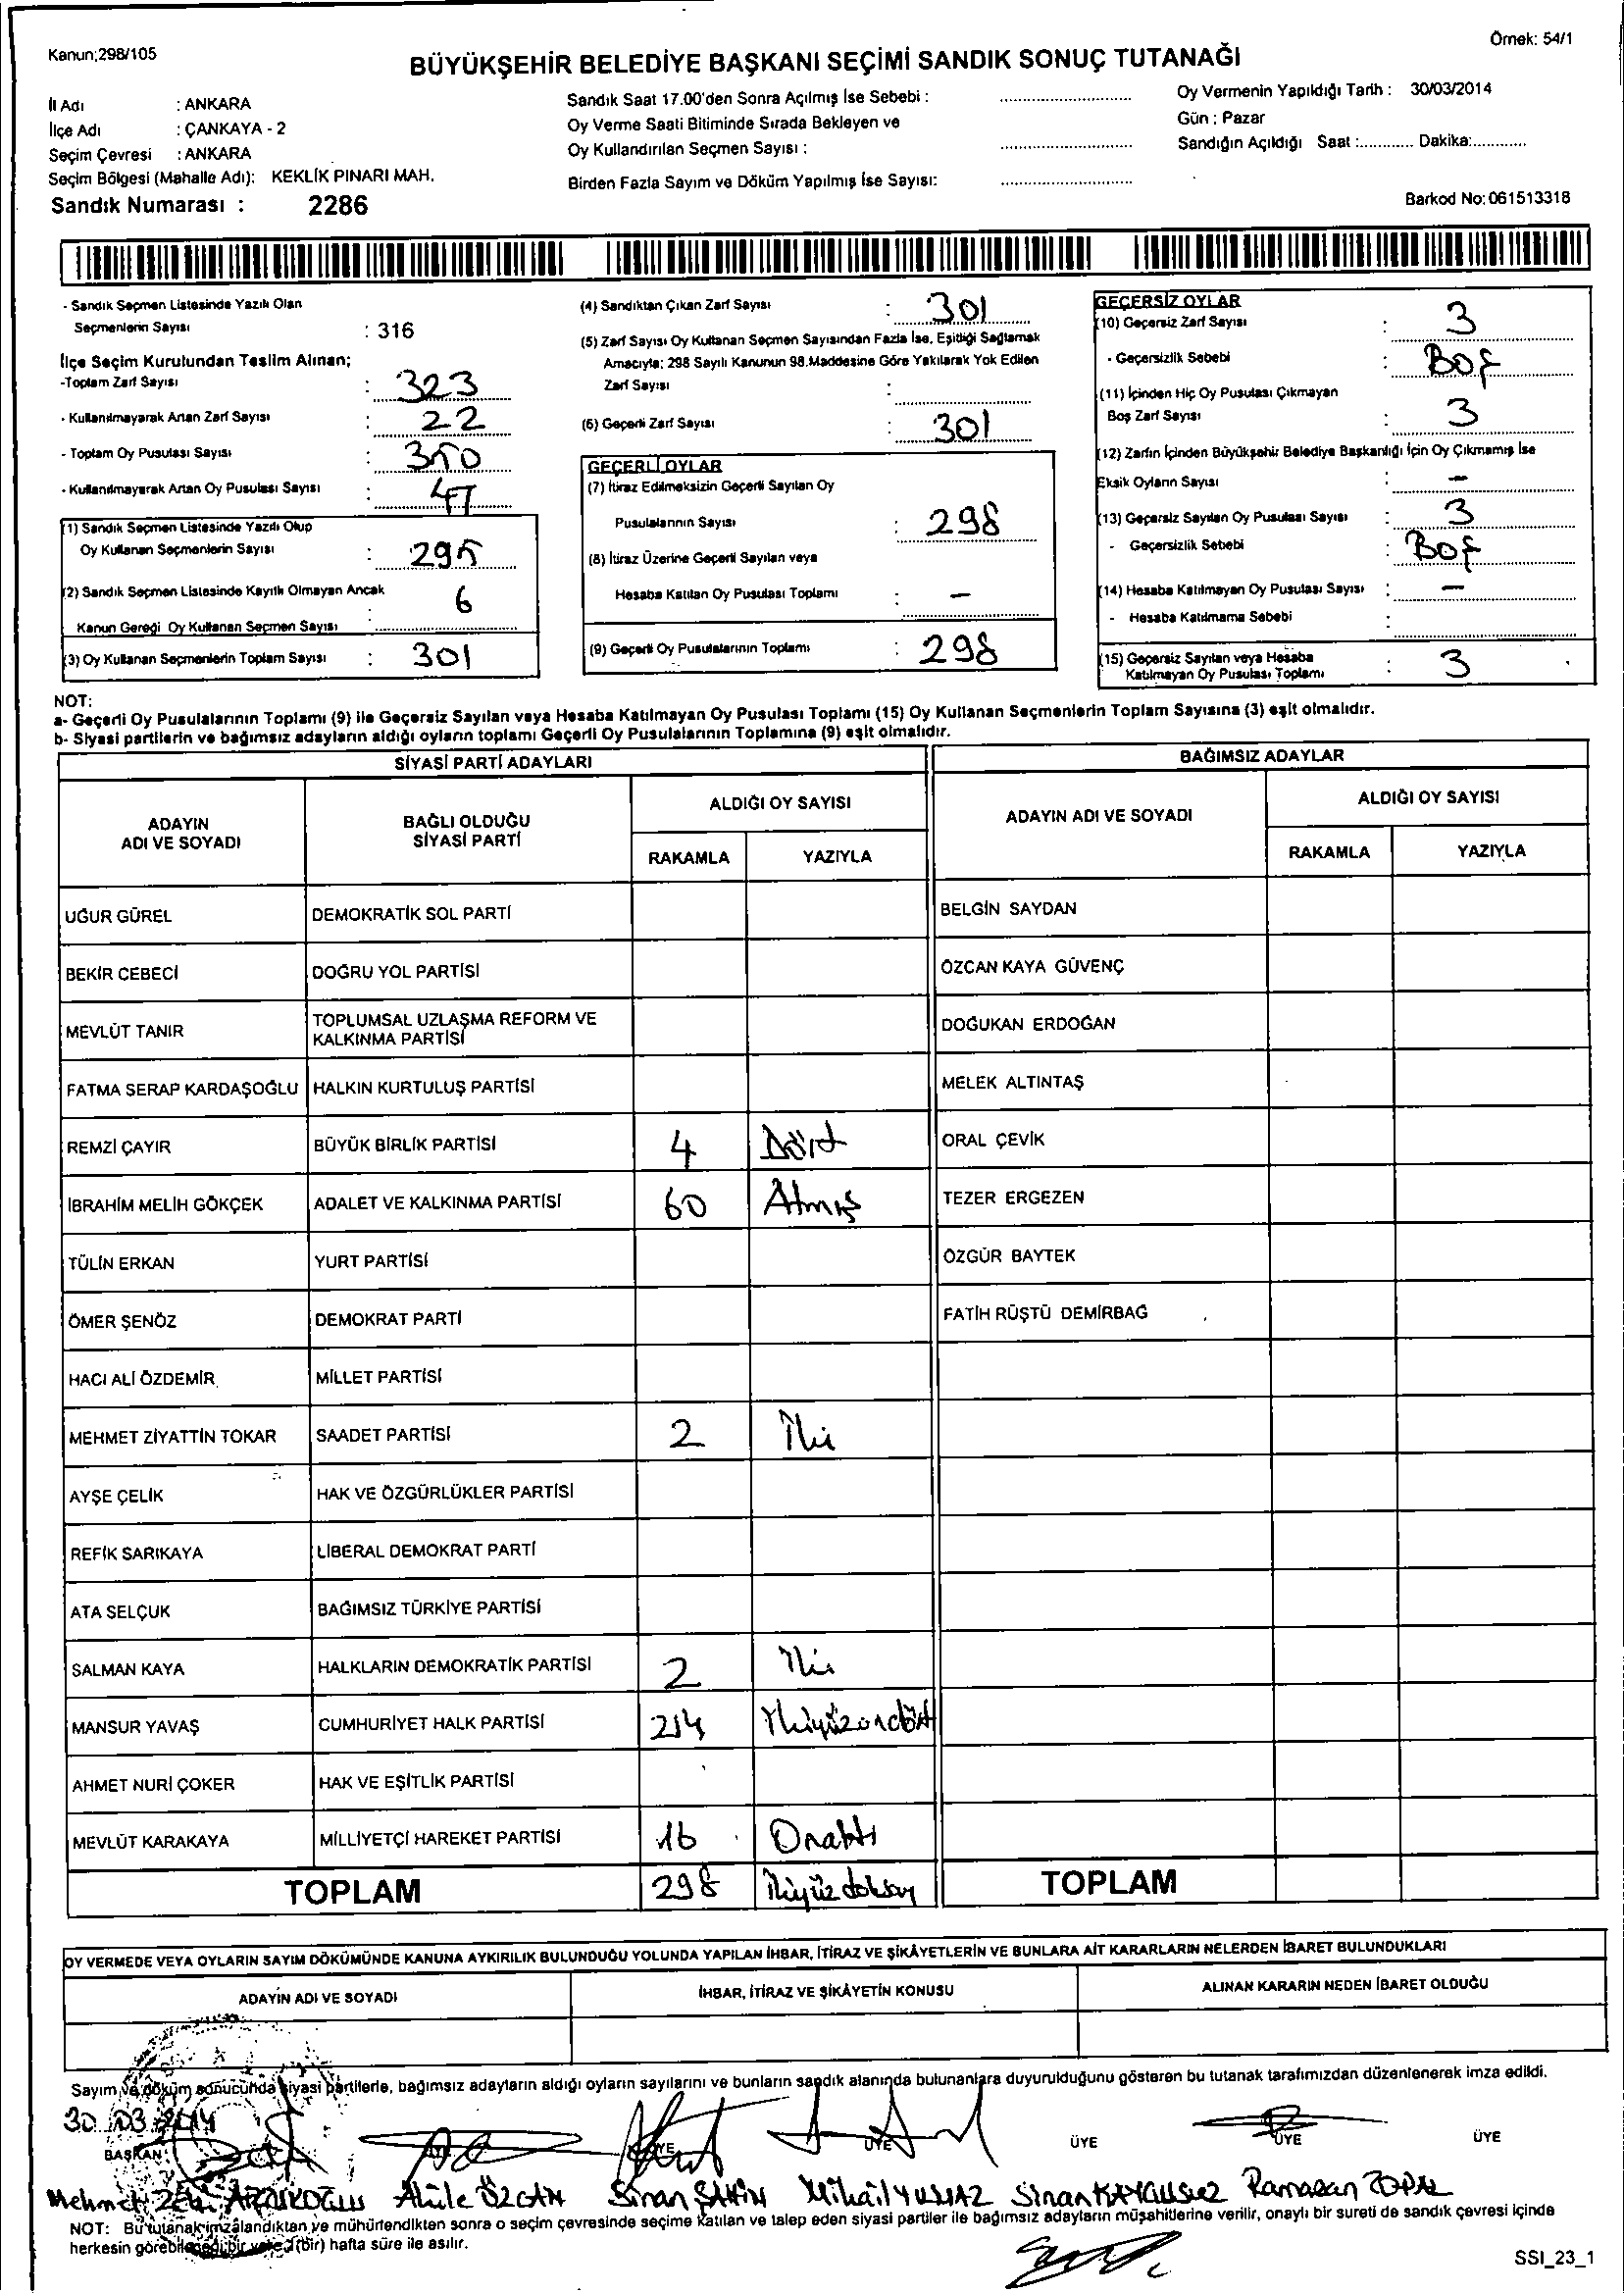 Kanun;298/105
Örnek: 54/1
BÜYÜKŞEHİR BELEDİYE BAŞKANI SEÇİMİ SANDIK SONUÇ TUTANAĞI
İl Adı : ANKARA
İlçe Adı : ÇANKAYA - 2
Seçim Çevresi : ANKARA
Seçim Bölgesi (Mahalle Adı): KEKLİK PINARI MAH.
Sandık Numarası : 2286
Sandık Saat 17.00'den Sonra Açılmış İse Sebebi :
Oy Verme Saati Bitiminde Sırada Bekleyen ve
Oy Kullandırılan Seçmen Sayısı :
Birden Fazla Sayım ve Döküm Yapılmış İse Sayısı:
Oy Vermenin Yapıldığı Tarih : 30/03/2014
Gün : Pazar
Sandığın Açıldığı Saat :............ Dakika:............
Barkod No: 061513318
- Sandık Seçmen Listesinde Yazılı Olan
Seçmenlerin Sayısı : 316
İlçe Seçim Kurulundan Teslim Alınan;
-Toplam Zarf Sayısı : 323
- Kullanılmayarak Artan Zarf Sayısı : 22
- Toplam Oy Pusulası Sayısı : 350
- Kullanılmayarak Artan Oy Pusulası Sayısı : 47
(1) Sandık Seçmen Listesinde Yazılı Olup
Oy Kullanan Seçmenlerin Sayısı : 295
(2) Sandık Seçmen Listesinde Kayıtlı Olmayan Ancak
Kanun Gereği Oy Kullanan Seçmen Sayısı : 6
(3) Oy Kullanan Seçmenlerin Toplam Sayısı : 301
(4) Sandıktan Çıkan Zarf Sayısı : 301
(5) Zarf Sayısı Oy Kullanan Seçmen Sayısından Fazla İse, Eşitliği Sağlamak
Amacıyla; 298 Sayılı Kanunun 98.Maddesine Göre Yakılarak Yok Edilen
Zarf Sayısı :
(6) Geçerli Zarf Sayısı : 301
GEÇERLİ OYLAR
(7) İtiraz Edilmeksizin Geçerli Sayılan Oy
Pusulalarının Sayısı : 298
(8) İtiraz Üzerine Geçerli Sayılan veya
Hesaba Katılan Oy Pusulası Toplamı : -
(9) Geçerli Oy Pusulalarının Toplamı : 298
GEÇERSİZ OYLAR
(10) Geçersiz Zarf Sayısı : 3
- Geçersizlik Sebebi : Boş
(11) İçinden Hiç Oy Pusulası Çıkmayan
Boş Zarf Sayısı : 3
(12) Zarfın İçinden Büyükşehir Belediye Başkanlığı İçin Oy Çıkmamış İse
Eksik Oyların Sayısı : -
(13) Geçersiz Sayılan Oy Pusulası Sayısı : 3
- Geçersizlik Sebebi : Boş
(14) Hesaba Katılmayan Oy Pusulası Sayısı : -
- Hesaba Katılmama Sebebi :
(15) Geçersiz Sayılan veya Hesaba
Katılmayan Oy Pusulası Toplamı : 3
NOT:
a- Geçerli Oy Pusulalarının Toplamı (9) ile Geçersiz Sayılan veya Hesaba Katılmayan Oy Pusulası Toplamı (15) Oy Kullanan Seçmenlerin Toplam Sayısına (3) eşit olmalıdır.
b- Siyasi partilerin ve bağımsız adayların aldığı oyların toplamı Geçerli Oy Pusulalarının Toplamına (9) eşit olmalıdır.
SİYASİ PARTİ ADAYLARI
ADAYIN ADI VE SOYADI
BAĞLI OLDUĞU SİYASİ PARTİ
ALDIĞI OY SAYISI
RAKAMLA YAZIYLA
UĞUR GÜREL DEMOKRATİK SOL PARTİ
BEKİR CEBECİ DOĞRU YOL PARTİSİ
MEVLÜT TANIR TOPLUMSAL UZLAŞMA REFORM VE KALKINMA PARTİSİ
FATMA SERAP KARDAŞOĞLU HALKIN KURTULUŞ PARTİSİ
REMZİ ÇAYIR BÜYÜK BİRLİK PARTİSİ 4 Dört
İBRAHİM MELİH GÖKÇEK ADALET VE KALKINMA PARTİSİ 60 Atmış
TÜLİN ERKAN YURT PARTİSİ
ÖMER ŞENÖZ DEMOKRAT PARTİ
HACI ALİ ÖZDEMİR MİLLET PARTİSİ
MEHMET ZİYATTİN TOKAR SAADET PARTİSİ 2 İki
AYŞE ÇELİK HAK VE ÖZGÜRLÜKLER PARTİSİ
REFİK SARIKAYA LİBERAL DEMOKRAT PARTİ
ATA SELÇUK BAĞIMSIZ TÜRKİYE PARTİSİ
SALMAN KAYA HALKLARIN DEMOKRATİK PARTİSİ 2 İki
MANSUR YAVAŞ CUMHURİYET HALK PARTİSİ 214 İkiyüzondört
AHMET NURİ ÇOKER HAK VE EŞİTLİK PARTİSİ
MEVLÜT KARAKAYA MİLLİYETÇİ HAREKET PARTİSİ 16 Onaltı
TOPLAM 298
BAĞIMSIZ ADAYLAR
ADAYIN ADI VE SOYADI
ALDIĞI OY SAYISI
RAKAMLA YAZIYLA
BELGİN SAYDAN
ÖZCAN KAYA GÜVENÇ
DOĞUKAN ERDOĞAN
MELEK ALTINTAŞ
ORAL ÇEVİK
TEZER ERGEZEN
ÖZGÜR BAYTEK
FATİH RÜŞTÜ DEMİRBAĞ
TOPLAM
OY VERMEDE VEYA OYLARIN SAYIM DÖKÜMÜNDE KANUNA AYKIRILIK BULUNDUĞU YOLUNDA YAPILAN İHBAR, İTİRAZ VE ŞİKÂYETLERİN VE BUNLARA AİT KARARLARIN NELERDEN İBARET BULUNDUKLARI
ADAYIN ADI VE SOYADI İHBAR, İTİRAZ VE ŞİKÂYETİN KONUSU ALINAN KARARIN NEDEN İBARET OLDUĞU
Sayım ve döküm sonucunda siyasi partilerle, bağımsız adayların aldığı oyların sayılarını ve bunların sandık alanında bulunanlara duyurulduğunu gösteren bu tutanak tarafımızdan düzenlenerek imza edildi.
30.03.2014
BAŞKAN ÜYE ÜYE ÜYE ÜYE ÜYE
Mehmet Sinan ŞAHİN Mihail YILMAZ Sinan KAYGUSUZ Ramazan TOPAL
NOT: Bu tutanak imzalandıktan ve mühürlendikten sonra o seçim çevresinde seçime katılan ve talep eden siyasi partiler ile bağımsız adayların müşahitlerine verilir, onaylı bir sureti de sandık çevresi içinde
herkesin görebileceği bir yere 1 (bir) hafta süre ile asılır.
SSI_23_1